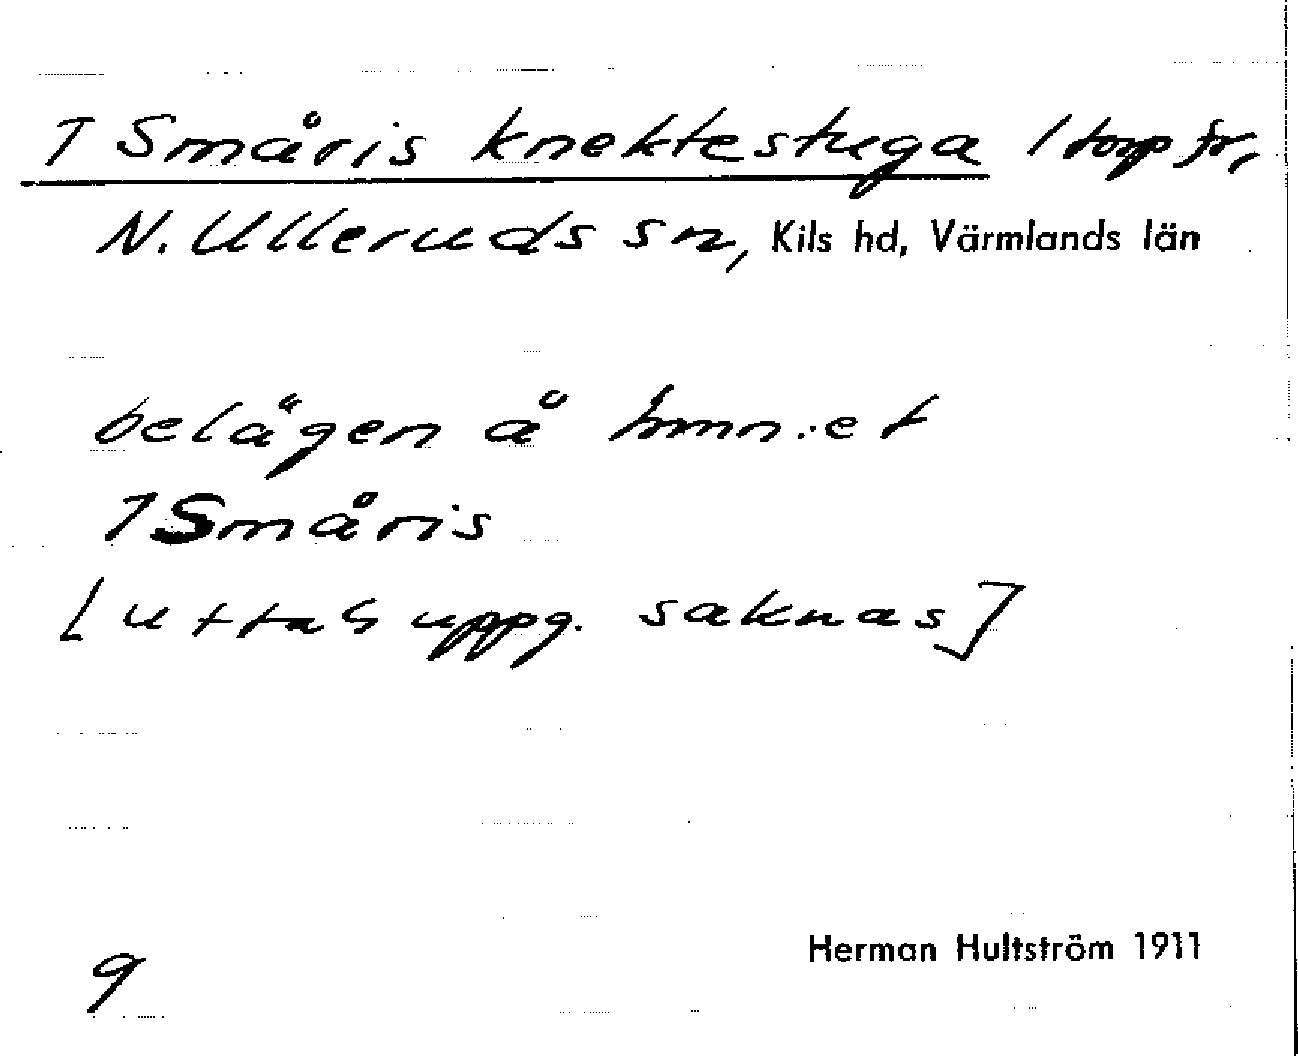 1 Småris knektestuga / torp fr,
N. Ulleruds sn, Kils hd, Värmlands län
belägen å hmn:et
1 Småris
[uttalsuppg. saknas]
Herman Hultström 1911
9